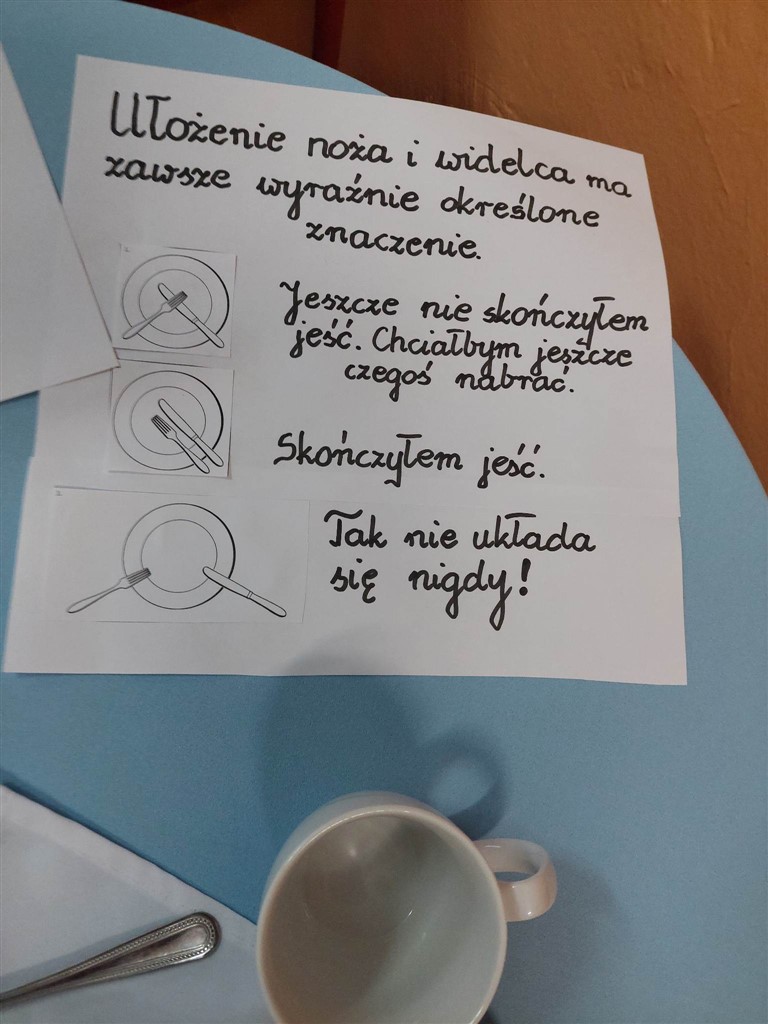 Ułożenie noża i widelca ma
zawsze wyraźnie określone
znaczenie.
Jeszcze nie skończyłem
jeść. Chciałbym jeszcze
czegoś nabrać.
Skończyłem jeść.
Tak nie układa
się nigdy!